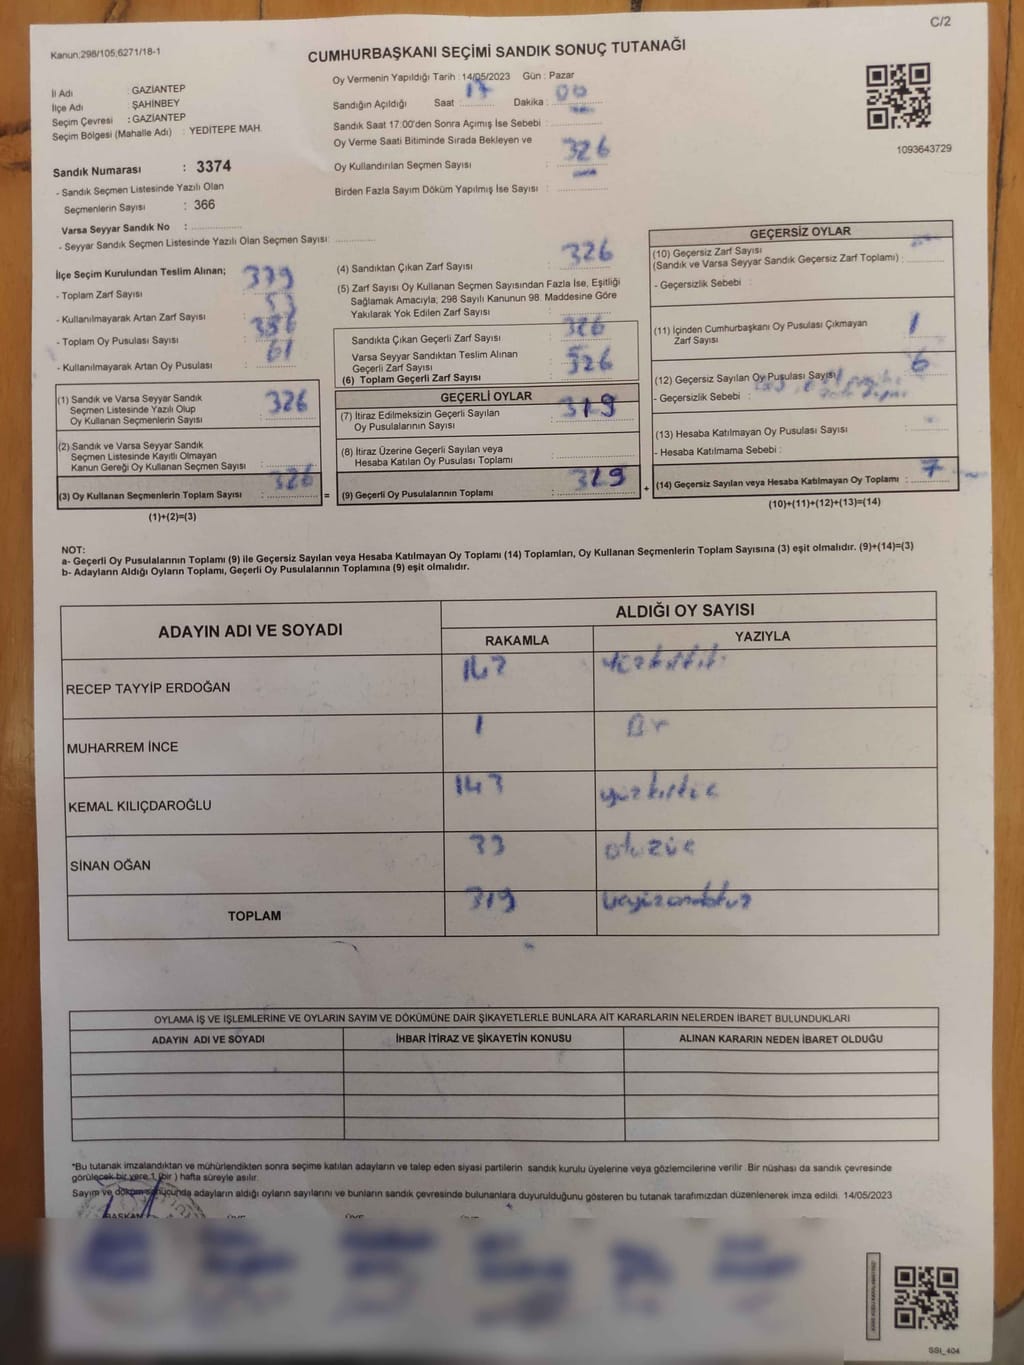 C/2
Kanun:298/105,6271/18-1
CUMHURBAŞKANI SEÇİMİ SANDIK SONUÇ TUTANAĞI
Oy Vermenin Yapıldığı Tarih : 14/05/2023 Gün : Pazar
İl Adı : GAZİANTEP
İlçe Adı : ŞAHİNBEY
Seçim Çevresi : GAZİANTEP
Seçim Bölgesi (Mahalle Adı) : YEDİTEPE MAH.
Sandığın Açıldığı Saat : 17 Dakika : 00
Sandık Saat 17:00'den Sonra Açımış İse Sebebi :
Oy Verme Saati Bitiminde Sırada Bekleyen ve
Oy Kullandırılan Seçmen Sayısı : 326
Birden Fazla Sayım Döküm Yapılmış İse Sayısı :
1093643729
Sandık Numarası : 3374
- Sandık Seçmen Listesinde Yazılı Olan
Seçmenlerin Sayısı : 366
Varsa Seyyar Sandık No :
- Seyyar Sandık Seçmen Listesinde Yazılı Olan Seçmen Sayısı:
İlçe Seçim Kurulundan Teslim Alınan;
- Toplam Zarf Sayısı : 379
- Kullanılmayarak Artan Zarf Sayısı : 53
- Toplam Oy Pusulası Sayısı :
- Kullanılmayarak Artan Oy Pusulası : 61
(1) Sandık ve Varsa Seyyar Sandık
Seçmen Listesinde Yazılı Olup
Oy Kullanan Seçmenlerin Sayısı : 326
(2) Sandık ve Varsa Seyyar Sandık
Seçmen Listesinde Kayıtlı Olmayan
Kanun Gereği Oy Kullanan Seçmen Sayısı :
(3) Oy Kullanan Seçmenlerin Toplam Sayısı : 326
(1)+(2)=(3)
(4) Sandıktan Çıkan Zarf Sayısı : 326
(5) Zarf Sayısı Oy Kullanan Seçmen Sayısından Fazla İse, Eşitliği
Sağlamak Amacıyla; 298 Sayılı Kanunun 98. Maddesine Göre
Yakılarak Yok Edilen Zarf Sayısı :
Sandıkta Çıkan Geçerli Zarf Sayısı : 326
Varsa Seyyar Sandıktan Teslim Alınan
Geçerli Zarf Sayısı :
(6) Toplam Geçerli Zarf Sayısı : 326
GEÇERLİ OYLAR
(7) İtiraz Edilmeksizin Geçerli Sayılan
Oy Pusulalarının Sayısı : 319
(8) İtiraz Üzerine Geçerli Sayılan veya
Hesaba Katılan Oy Pusulası Toplamı :
= (9) Geçerli Oy Pusulalarının Toplamı : 319
GEÇERSİZ OYLAR
(10) Geçersiz Zarf Sayısı
(Sandık ve Varsa Seyyar Sandık Geçersiz Zarf Toplamı) :
- Geçersizlik Sebebi :
(11) İçinden Cumhurbaşkanı Oy Pusulası Çıkmayan
Zarf Sayısı : 1
(12) Geçersiz Sayılan Oy Pusulası Sayısı : 6
- Geçersizlik Sebebi :
(13) Hesaba Katılmayan Oy Pusulası Sayısı :
- Hesaba Katılmama Sebebi :
+ (14) Geçersiz Sayılan veya Hesaba Katılmayan Oy Toplamı : 7
(10)+(11)+(12)+(13)=(14)
NOT:
a- Geçerli Oy Pusulalarının Toplamı (9) ile Geçersiz Sayılan veya Hesaba Katılmayan Oy Toplamı (14) Toplamları, Oy Kullanan Seçmenlerin Toplam Sayısına (3) eşit olmalıdır. (9)+(14)=(3)
b- Adayların Aldığı Oyların Toplamı, Geçerli Oy Pusulalarının Toplamına (9) eşit olmalıdır.
ADAYIN ADI VE SOYADI ALDIĞI OY SAYISI
RAKAMLA YAZIYLA
RECEP TAYYİP ERDOĞAN 142
MUHARREM İNCE 1 Bir
KEMAL KILIÇDAROĞLU 143 yüzkırküç
SİNAN OĞAN 33 otuzüç
TOPLAM 319 üçyüzondokuz
OYLAMA İŞ VE İŞLEMLERİNE VE OYLARIN SAYIM VE DÖKÜMÜNE DAİR ŞİKAYETLERLE BUNLARA AİT KARARLARIN NELERDEN İBARET BULUNDUKLARI
ADAYIN ADI VE SOYADI İHBAR İTİRAZ VE ŞİKAYETİN KONUSU ALINAN KARARIN NEDEN İBARET OLDUĞU
*Bu tutanak imzalandıktan ve mühürlendikten sonra seçime katılan adayların ve talep eden siyasi partilerin sandık kurulu üyelerine veya gözlemcilerine verilir. Bir nüshası da sandık çevresinde
görülecek bir yere 1 (bir ) hafta süreyle asılır.
Sayım ve döküm sonucunda adayların aldığı oyların sayılarını ve bunların sandık çevresinde bulunanlara duyurulduğunu gösteren bu tutanak tarafımızdan düzenlenerek imza edildi. 14/05/2023
BAŞKAN ÜYE ÜYE
SSI_404